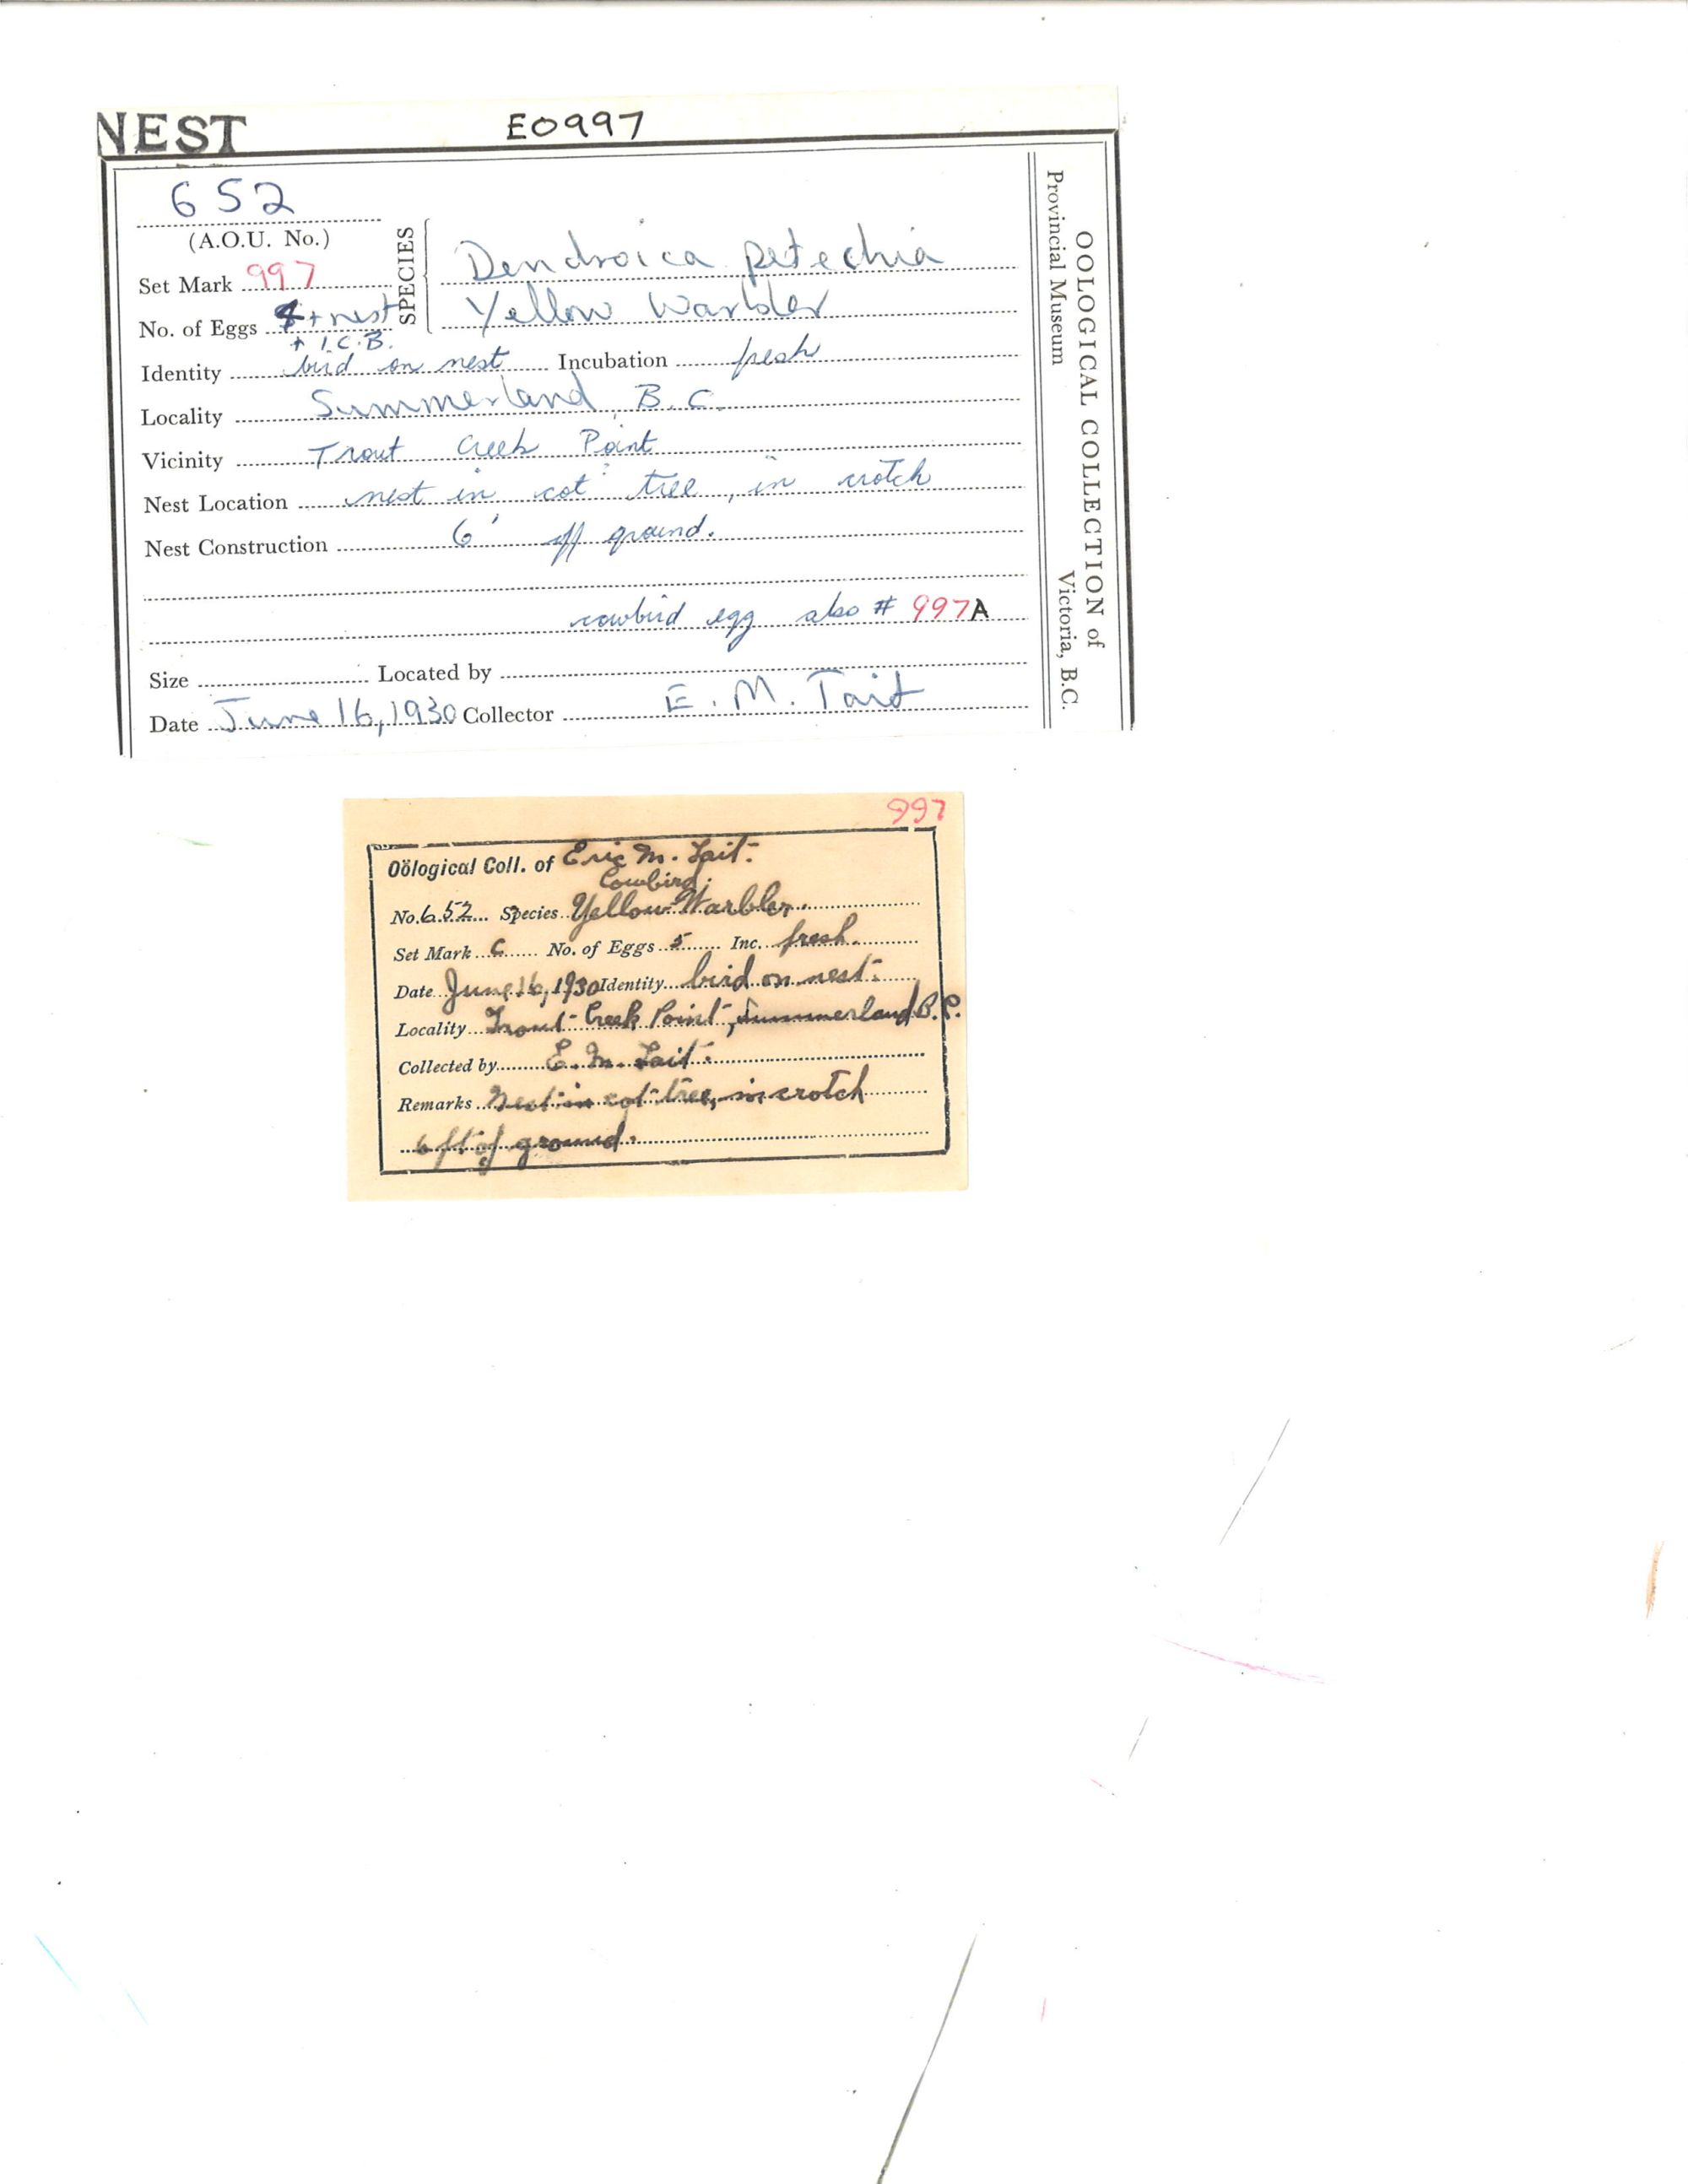 NEST E0997
652
(A.O.U. No.)
SPECIES
Dendroica petechia
Set Mark 997
Yellow Warbler
No. of Eggs 4 + nest
+ 1 C.B.
Identity bird on nest Incubation fresh
Locality Summerland, B.C.
Vicinity Trout Creek Point
Nest Location nest in cot tree, in crotch
Nest Construction 6' off ground.
cowbird egg also # 997A
Size Located by
Date June 16, 1930 Collector E. M. Tait
OOLOGICAL COLLECTION of
Provincial Museum Victoria, B.C.
997
Oölogical Coll. of Eric M. Tait.
Cowbird.
No. 652 Species Yellow Warbler.
Set Mark C No. of Eggs 5 Inc. fresh.
Date June 16, 1930 Identity bird on nest.
Locality Trout Creek Point, Summerland B.C.
Collected by E. M. Tait.
Remarks Nest in cot tree, in crotch
6 ft of ground.